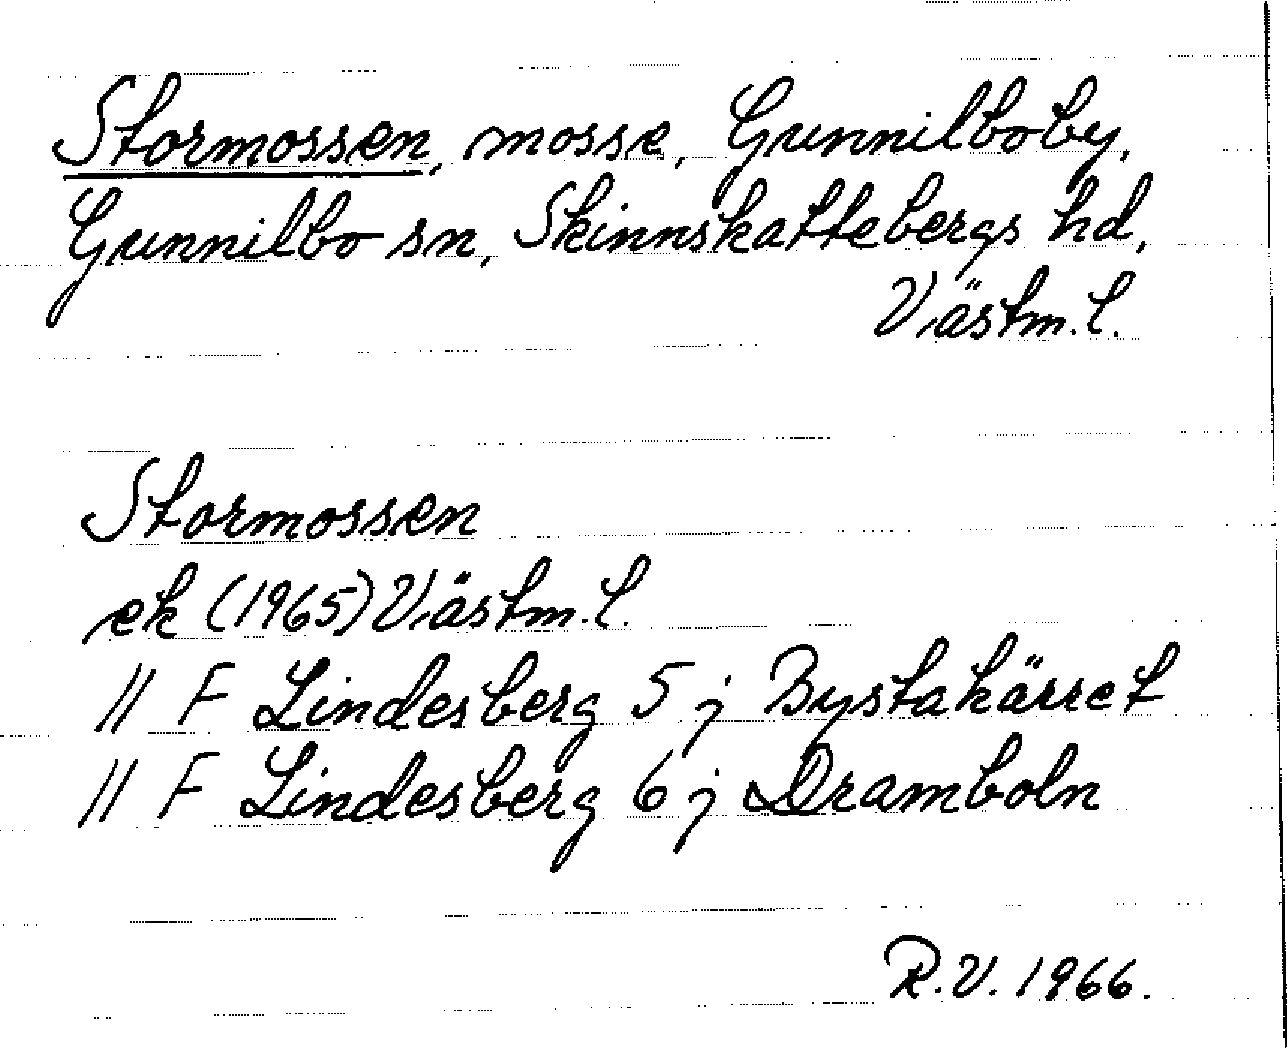 Stormossen, mosse, Gunnilboby,
Gunnilbo sn, Skinnskattebergs hd,
Västm. l.
Stormossen
ek (1965) Västm. l.
11 F Lindesberg 5 j Bystakärret
11 F Lindesberg 6 j Dramboln
R.V. 1966.